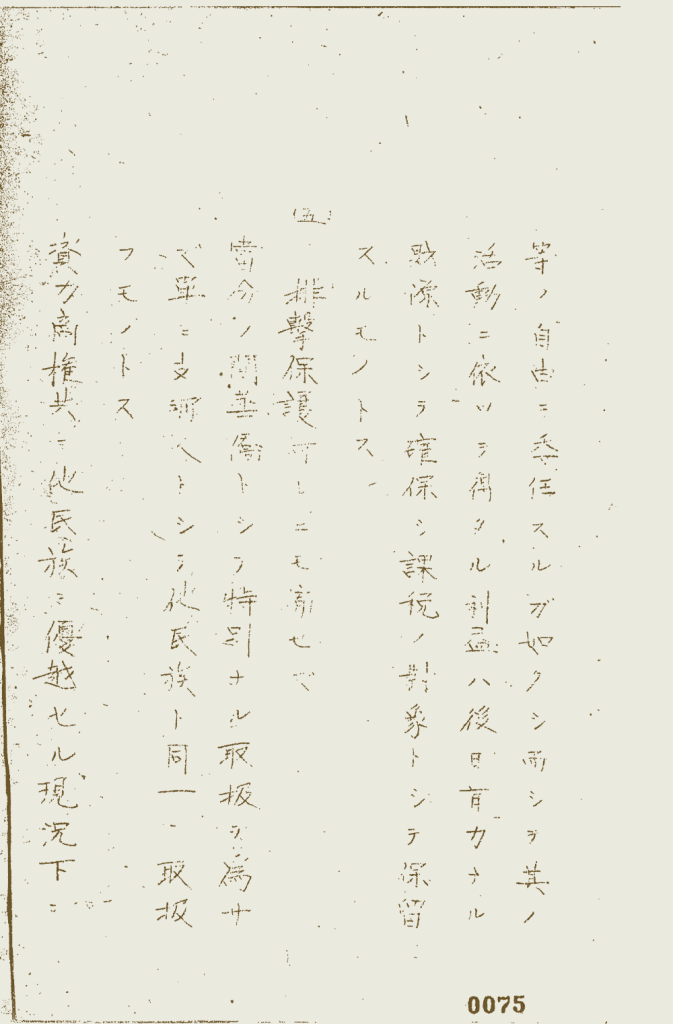 等ノ自由ニ委任スルガ如クシ而シテ其ノ
活動ニ依ツテ得タル利益ハ後日有力ナル
財源トシテ確保シ課税ノ對象トシテ保留
スルモノトス
(五) 排撃保護何レニモ寄セズ
當分ノ間華僑トシテ特別ナル取扱ヲ為サ
ズ單ニ支那人トシテ他民族ト同一ニ取扱
フモノトス
資力商権共ニ他民族ニ優越セル現況下ニ
0075